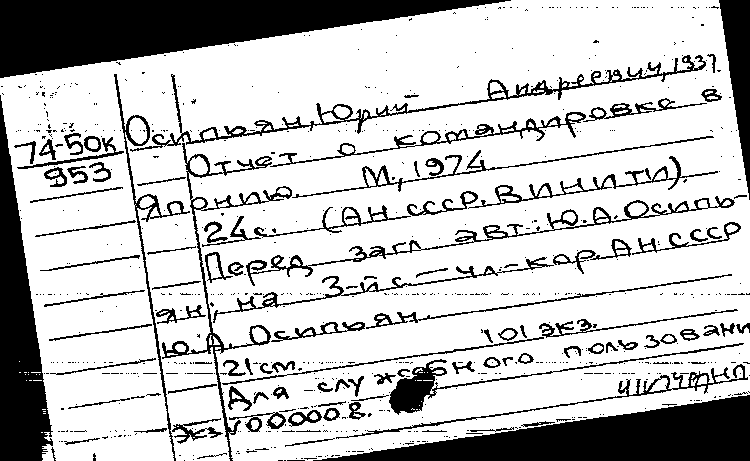 Осипьян, Юрий Андреевич, 1937
74-50к
953
Отчет о командировке в
Японию. М., 1974
24с. (АН СССР. ВИНИТИ).
Перед загл авт.: Ю.А.Осипь-
ян; на 3-й с. – чл-кор. АН СССР
Ю.А. Осипьян.
21см. 101 экз.
Для служебного пользовани
Экз №000008.